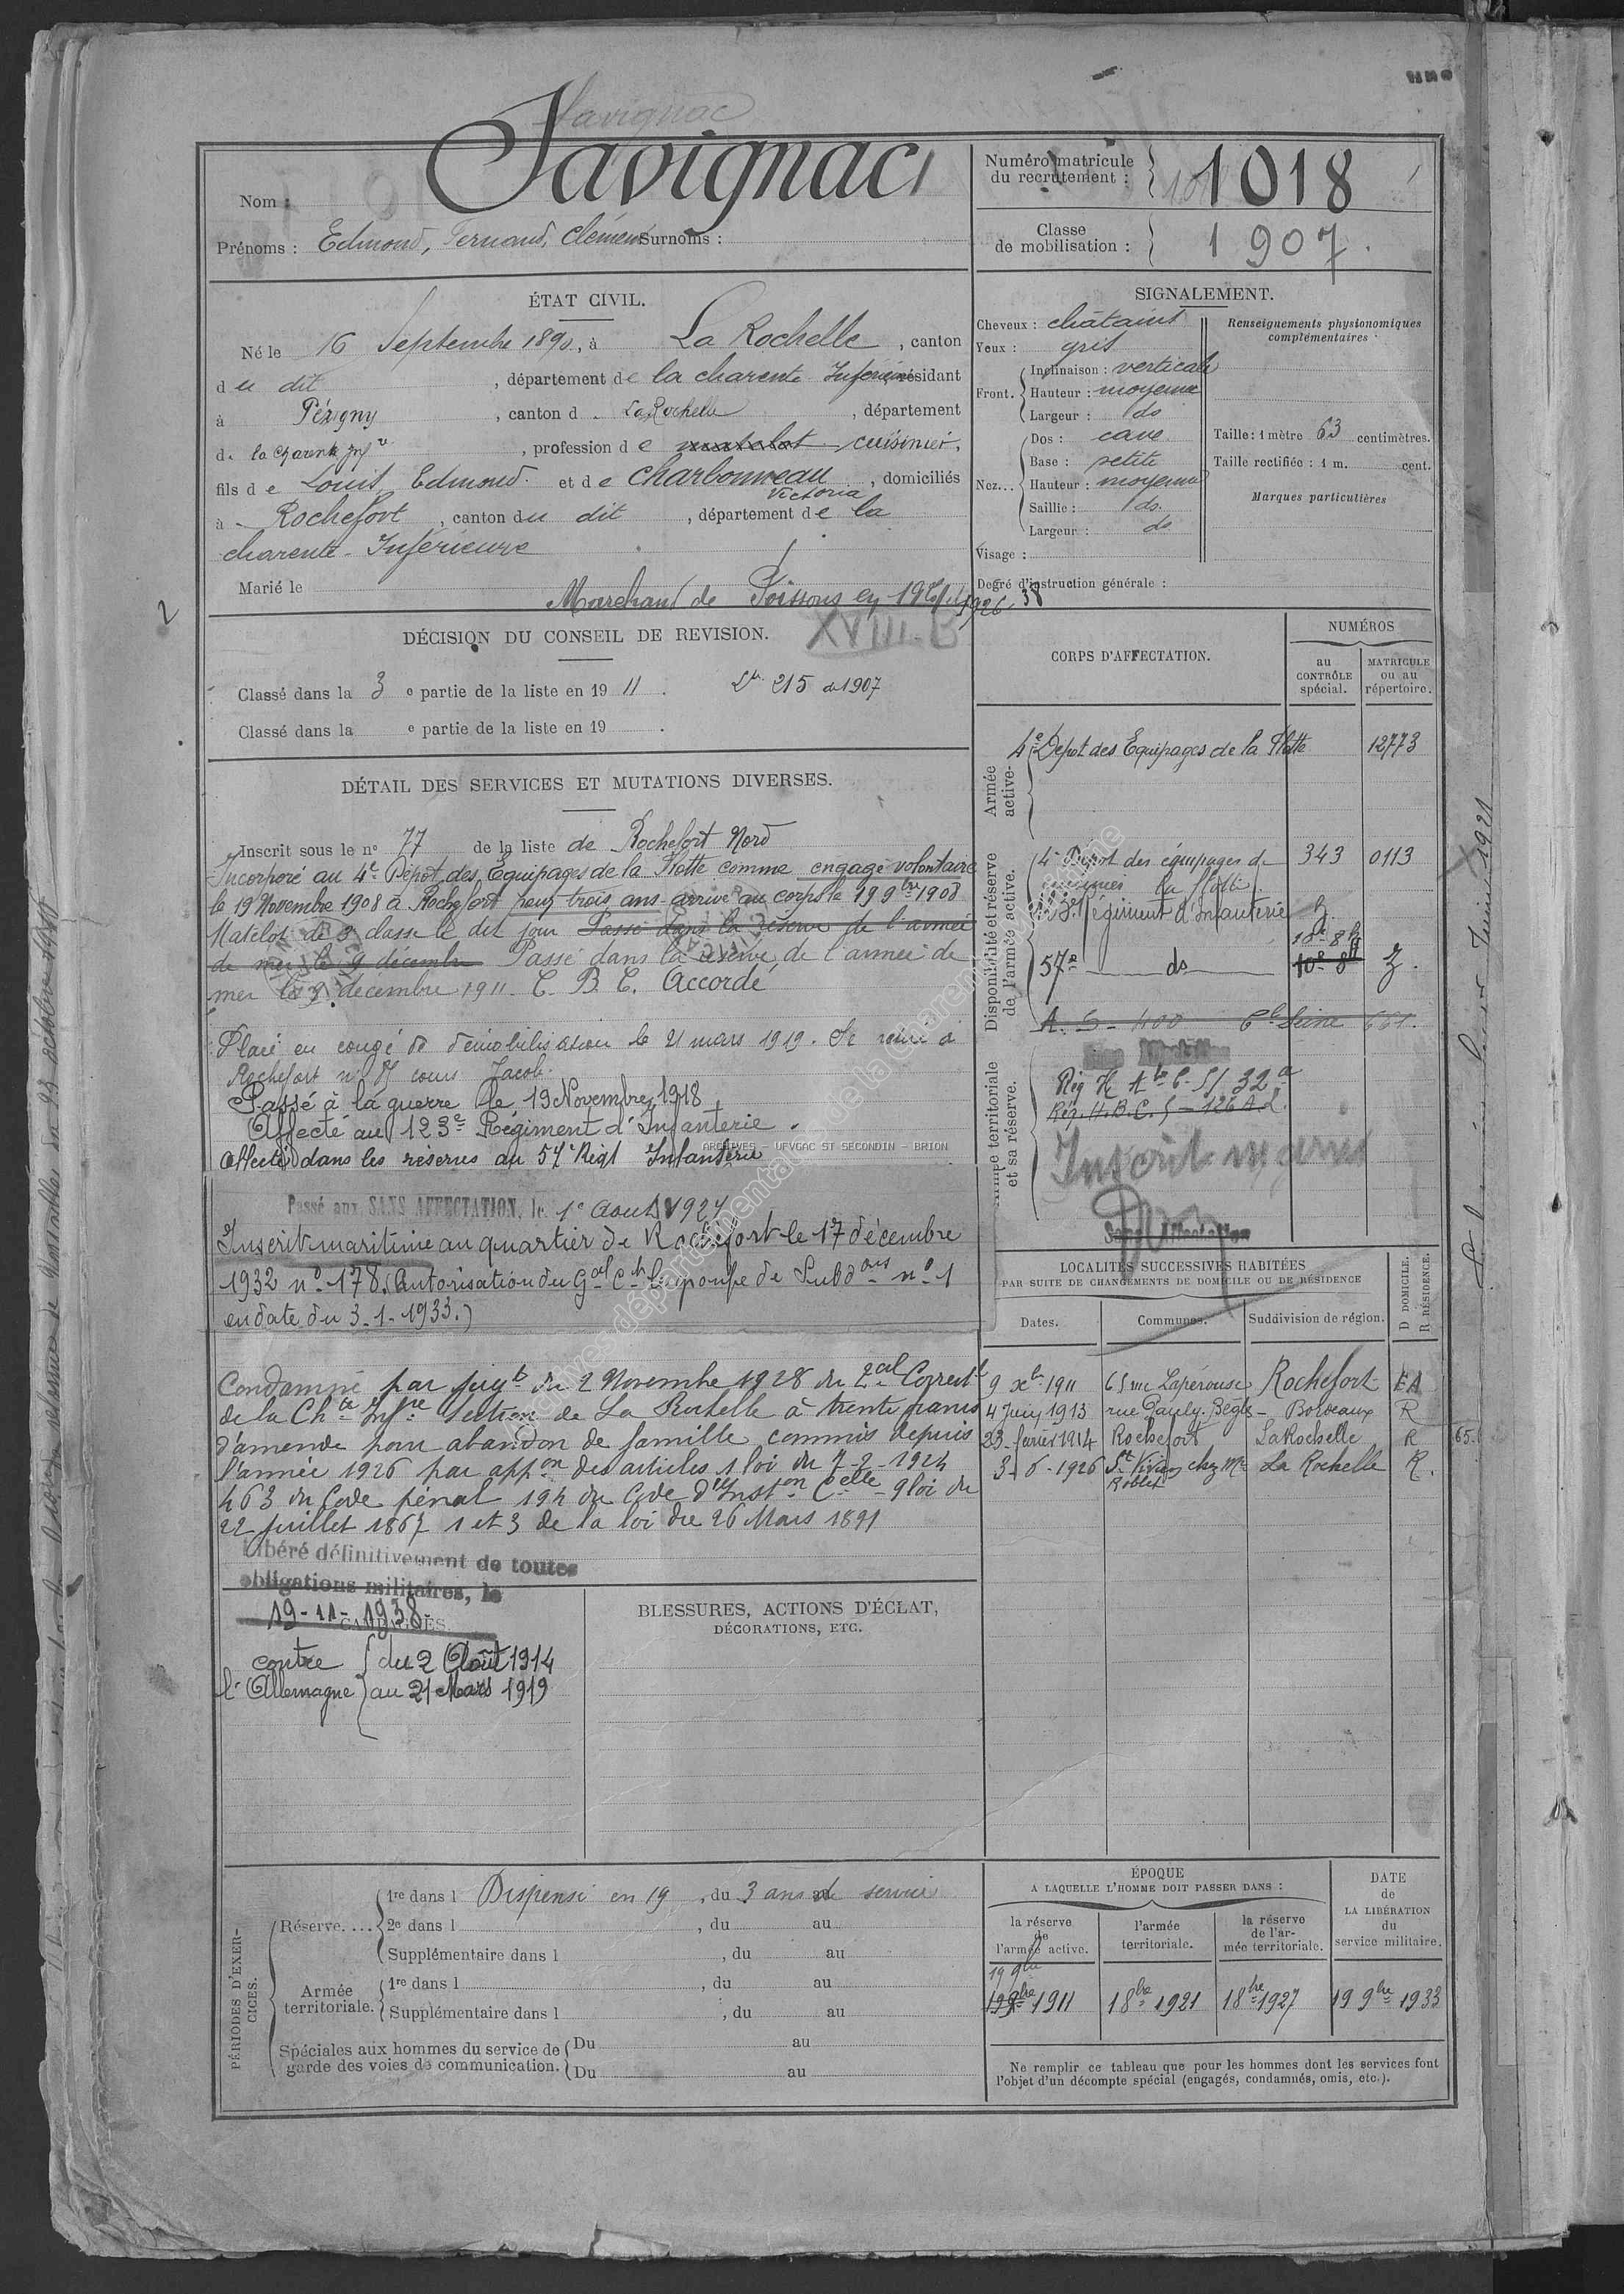 Savignac
Savignac
Nom :
Prénoms : Edmond, Fernand, Clément Surnoms :
Numéro matricule
du recrutement : 1018
Classe
de mobilisation : 1907.
ÉTAT CIVIL.
Né le 16 Septembre 1890, à La Rochelle, canton
du dit, département de la Charente Inférieure résidant
à Périgny, canton d La Rochelle, département
d. la Charente Infre, profession de matelot cuisinier,
fils de Louis Edmond et de Charbonneau Victoria, domiciliés
à Rochefort, canton du dit, département de la
Charente-Inférieure
Marié le
Marchand de Poissons en 1926
SIGNALEMENT.
Cheveux : châtains
Yeux : gris
Front. Inclinaison : verticale
Hauteur : moyenne
Largeur : do
Nez... Dos : cave
Base : petite
Hauteur : moyenne
Saillie : do.
Largeur : do
Visage :
Renseignements physionomiques
complémentaires
Taille : 1 mètre 63 centimètres.
Taille rectifiée : 1 m. cent.
Marques particulières
Degré d'instruction générale :
DÉCISION DU CONSEIL DE REVISION.
XVIII-B
Classé dans la 3 e partie de la liste en 19 11. 215 de 1907
Classé dans la e partie de la liste en 19 .
DÉTAIL DES SERVICES ET MUTATIONS DIVERSES.
Inscrit sous le no 77 de la liste de Rochefort Nord
Incorporé au 4e Dépôt des Equipages de la Flotte comme engagé volontaire
le 19 Novembre 1908 à Rochefort pour trois ans arrivé au corps le 19 9bre 1908
Matelot de 3e classe le dit jour Passé dans la réserve de l'armée
de mer le 9 décembre Passé dans la réserve de l'armée de
mer le 9 décembre 1911. C. B. C. Accordé
Placé en congé de démobilisation le 21 mars 1919. Se retire à
Rochefort no 85 cours Jacob.
Passé à la guerre le 19 Novembre 1918
Affecté au 123e Régiment d'Infanterie.
ARCHIVES – UFVGAC ST SECONDIN – BRION
Affecté dans les réserves au 57e Régt Infanterie
Passé aux SANS AFFECTATION, le 1e Aout 1927
Inscrit maritime au quartier de Rochefort le 17 décembre
1932 no 178. (Autorisation du Gal Ct le groupe de Subdons no 1
en date du 3-1-1933.)
Condamné par jugt du 2 Novembre 1928 du Correctl
de la Chte Infre section de La Rochelle à trente francs
d'amende pour abandon de famille commis depuis
l'année 1926 par appon des articles 1 loi du 7-2-1924
463 du Code pénal 194 du Code d'Inston Celle 9 loi du
22 juillet 1867 1 et 3 de la loi du 26 Mars 1891
Libéré définitivement de toutes
obligations militaires, le
19-11-1938-
CAMPAGNES.
contre du 2 Août 1914
l'Allemagne au 21 Mars 1919
BLESSURES, ACTIONS D'ÉCLAT,
DÉCORATIONS, ETC.
CORPS D'AFFECTATION.
NUMÉROS
au CONTRÔLE spécial.
MATRICULE ou au répertoire.
Armée active.
4e Dépôt des Equipages de la Flotte 12773
Disponibilité et réserve de l'armée active.
4e Dépôt des équipages de la flotte 343 0113
123e Régiment d'Infanterie
57e do
A. S - 400 Seine 661.
Armée territoriale et sa réserve.
Sans Affectation
Inscrit
Sans Affectation
LOCALITÉS SUCCESSIVES HABITÉES
PAR SUITE DE CHANGEMENTS DE DOMICILE OU DE RÉSIDENCE
D DOMICILE.
R RÉSIDENCE.
Dates. Communes. Subdivision de région.
9 xbre 1911 65 rue Lapérouse Rochefort
4 Juin 1913 rue Pauly. Bègles - Bordeaux R
23 février 1914 Rochefort La Rochelle R
3-6-1926 St Vivien chez Me Roblet La Rochelle R.
PÉRIODES D'EXERCICES.
Réserve.... 1re dans l Dispensé en 19 , du 3 ans de service
2e dans l , du au
Supplémentaire dans l , du au
Armée territoriale. 1re dans l , du au
Supplémentaire dans l , du au
Spéciales aux hommes du service de Du au
garde des voies de communication. Du au
ÉPOQUE
A LAQUELLE L'HOMME DOIT PASSER DANS :
la réserve de l'armée active.
l'armée territoriale.
la réserve de l'armée territoriale.
DATE de LA LIBÉRATION du service militaire.
19 9bre
19 9bre 1911 1 8bre 1921 1 8bre 1927 19 9bre 1933
Ne remplir ce tableau que pour les hommes dont les services font
l'objet d'un décompte spécial (engagés, condamnés, omis, etc.).
Archives départementales de la Charente-Maritime